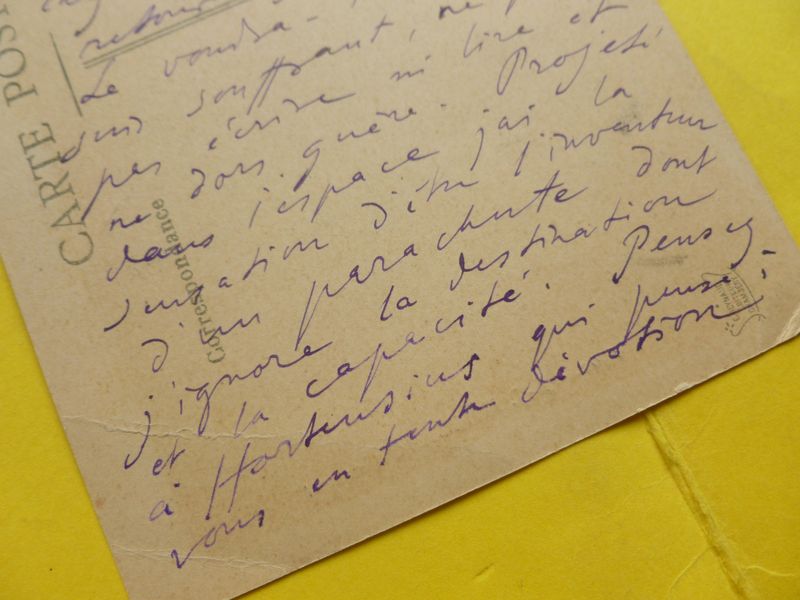 CARTE POS
Correspondance
retour
Le voudra-
suis souffrant, ne p
pas écrire ni lire et
ne dors guère. Projeté
dans l'espace j'ai la
sensation d'être l'inventeur
d'un parachute dont
j'ignore la destination
et la capacité. Pensez
à Hortensius qui pense à
vous en toute dévotion